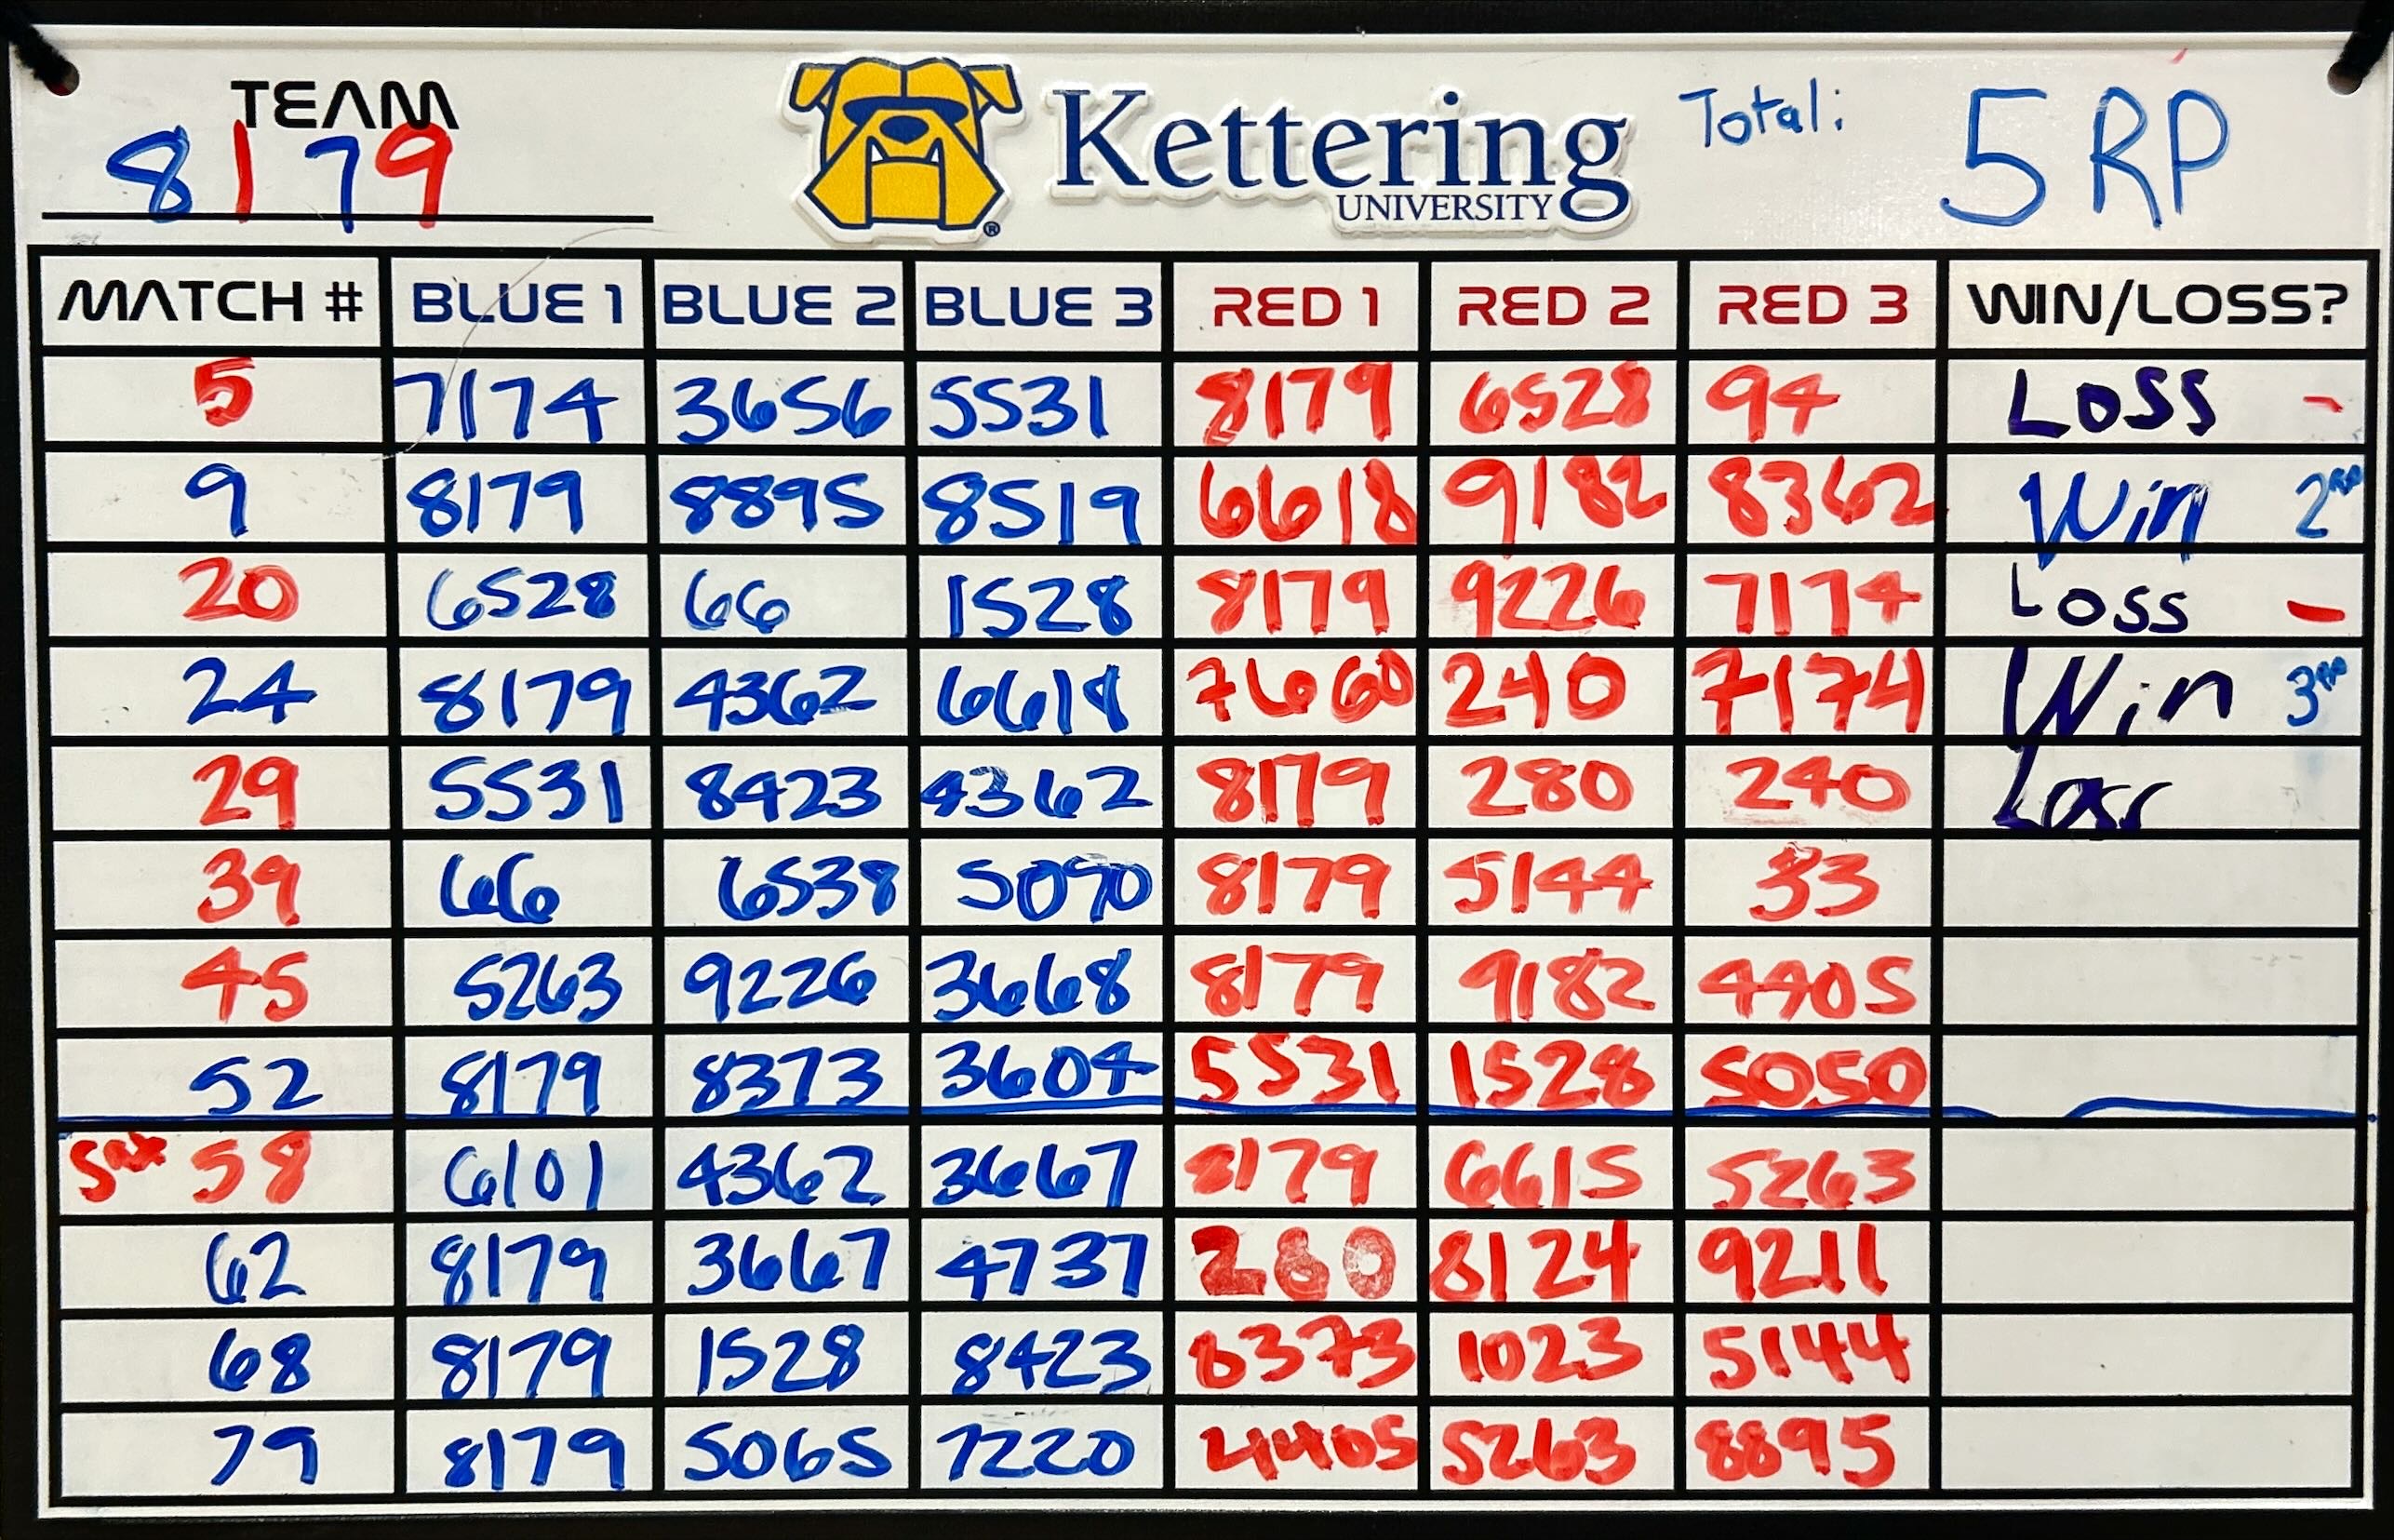 TEAM
8179
Kettering
UNIVERSITY
®
Total: 5 RP
MATCH # BLUE 1 BLUE 2 BLUE 3 RED 1 RED 2 RED 3 WIN/LOSS?
5 7174 3656 5531 8179 6528 94 Loss -
9 8179 8895 8519 6618 9182 8362 Win 2RP
20 6528 66 1528 8179 9226 7174 Loss -
24 8179 4362 6618 7660 240 7174 Win 3RP
29 5531 8423 4362 8179 280 240 Loss
39 66 6538 5090 8179 5144 33
45 5263 9226 3668 8179 9182 4405
52 8179 8373 3604 5531 1528 5050
Sat 58 6101 4362 3667 8179 6615 5263
62 8179 3667 4737 280 8124 9211
68 8179 1528 8423 8373 1023 5144
79 8179 5065 7220 4405 5263 8895